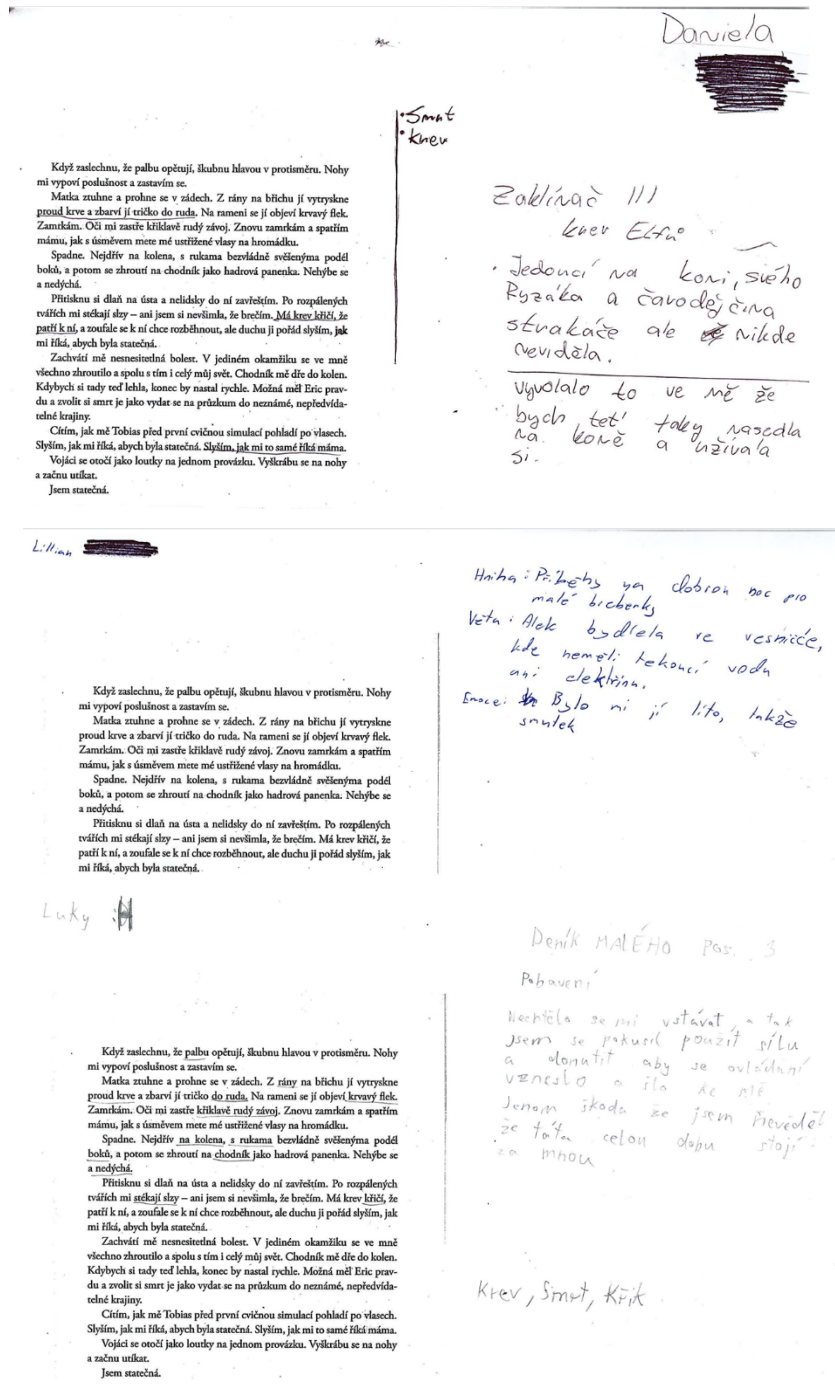 Daniela
• Smrt
• Krev
Když zaslechnu, že palbu opětují, škubnu hlavou v protisměru. Nohy
mi vypoví poslušnost a zastavím se.
Matka ztuhne a prohne se v zádech. Z rány na břichu jí vytryskne
proud krve a zbarví jí tričko do ruda. Na rameni se jí objeví krvavý flek.
Zamrkám. Oči mi zastře křiklavě rudý závoj. Znovu zamrkám a spatřím
mámu, jak s úsměvem mete mé ustřižené vlasy na hromádku.
Spadne. Nejdřív na kolena, s rukama bezvládně svěšenýma podél
boků, a potom se zhroutí na chodník jako hadrová panenka. Nehýbe se
a nedýchá.
Přitisknu si dlaň na ústa a nelidsky do ní zavřeštím. Po rozpálených
tvářích mi stékají slzy – ani jsem si nevšimla, že brečím. Má krev křičí, že
patří k ní, a zoufale se k ní chce rozběhnout, ale duchu ji pořád slyším, jak
mi říká, abych byla statečná.
Zachvátí mě nesnesitelná bolest. V jediném okamžiku se ve mně
všechno zhroutilo a spolu s tím i celý můj svět. Chodník mě dře do kolen.
Kdybych si tady teď lehla, konec by nastal rychle. Možná měl Eric prav-
du a zvolit si smrt je jako vydat se na průzkum do neznámé, nepředvída-
telné krajiny.
Cítím, jak mě Tobias před první cvičnou simulací pohladí po vlasech.
Slyším, jak mi říká, abych byla statečná. Slyším, jak mi to samé říká máma.
Vojáci se otočí jako loutky na jednom provázku. Vyškrábu se na nohy
a začnu utíkat.
Jsem statečná.
Zaklínač III
krev Elfů
• Jedoucí na koni, svého
Ryzáka a čarodějčina
strakáče ale nikde
neviděla.
Vyvolalo to ve mě že
bych teť taky nasedla
na koně a užívala
si.
Lillian
Kniha: Příběhy na dobrou noc pro
malé
Věta: Alek bydlela ve vesničce,
kde neměli tekoucí vodu
ani elektřinu.
Emoce: Bylo mi jí líto, takže
smutek
Když zaslechnu, že palbu opětují, škubnu hlavou v protisměru. Nohy
mi vypoví poslušnost a zastavím se.
Matka ztuhne a prohne se v zádech. Z rány na břichu jí vytryskne
proud krve a zbarví jí tričko do ruda. Na rameni se jí objeví krvavý flek.
Zamrkám. Oči mi zastře křiklavě rudý závoj. Znovu zamrkám a spatřím
mámu, jak s úsměvem mete mé ustřižené vlasy na hromádku.
Spadne. Nejdřív na kolena, s rukama bezvládně svěšenýma podél
boků, a potom se zhroutí na chodník jako hadrová panenka. Nehýbe se
a nedýchá.
Přitisknu si dlaň na ústa a nelidsky do ní zavřeštím. Po rozpálených
tvářích mi stékají slzy – ani jsem si nevšimla, že brečím. Má krev křičí, že
patří k ní, a zoufale se k ní chce rozběhnout, ale duchu ji pořád slyším, jak
mi říká, abych byla statečná.
Luky
Deník MALÉHO Pos. 3
Pobavení
Nechtělo se mi vstávat, a tak
jsem se pokusil použít sílu
a donutit aby se ovládání
vzneslo a šlo ke mě
Jenom škoda že jsem nevěděl
že táta celou dobu stojí
za mnou
Když zaslechnu, že palbu opětují, škubnu hlavou v protisměru. Nohy
mi vypoví poslušnost a zastavím se.
Matka ztuhne a prohne se v zádech. Z rány na břichu jí vytryskne
proud krve a zbarví jí tričko do ruda. Na rameni se jí objeví krvavý flek.
Zamrkám. Oči mi zastře křiklavě rudý závoj. Znovu zamrkám a spatřím
mámu, jak s úsměvem mete mé ustřižené vlasy na hromádku.
Spadne. Nejdřív na kolena, s rukama bezvládně svěšenýma podél
boků, a potom se zhroutí na chodník jako hadrová panenka. Nehýbe se
a nedýchá.
Přitisknu si dlaň na ústa a nelidsky do ní zavřeštím. Po rozpálených
tvářích mi stékají slzy – ani jsem si nevšimla, že brečím. Má krev křičí, že
patří k ní, a zoufale se k ní chce rozběhnout, ale duchu ji pořád slyším, jak
mi říká, abych byla statečná.
Zachvátí mě nesnesitelná bolest. V jediném okamžiku se ve mně
všechno zhroutilo a spolu s tím i celý můj svět. Chodník mě dře do kolen.
Kdybych si tady teď lehla, konec by nastal rychle. Možná měl Eric prav-
du a zvolit si smrt je jako vydat se na průzkum do neznámé, nepředvída-
telné krajiny.
Cítím, jak mě Tobias před první cvičnou simulací pohladí po vlasech.
Slyším, jak mi říká, abych byla statečná. Slyším, jak mi to samé říká máma.
Vojáci se otočí jako loutky na jednom provázku. Vyškrábu se na nohy
a začnu utíkat.
Jsem statečná.
Krev, Smrt, Křik